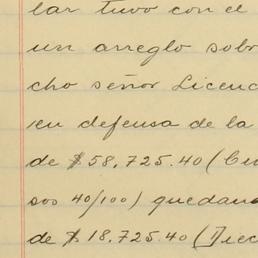 lar tuvo con el
un arreglo sobr
cho señor Licenc
en defensa de la
de $58,725.40 (Cin
sos 40/100) quedand
de $18,725.40 (Diec